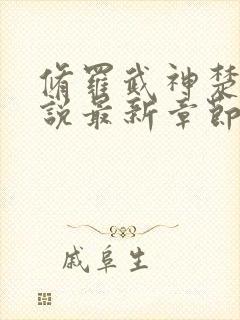 脩羅武神楚
說最新章節
戚阜生